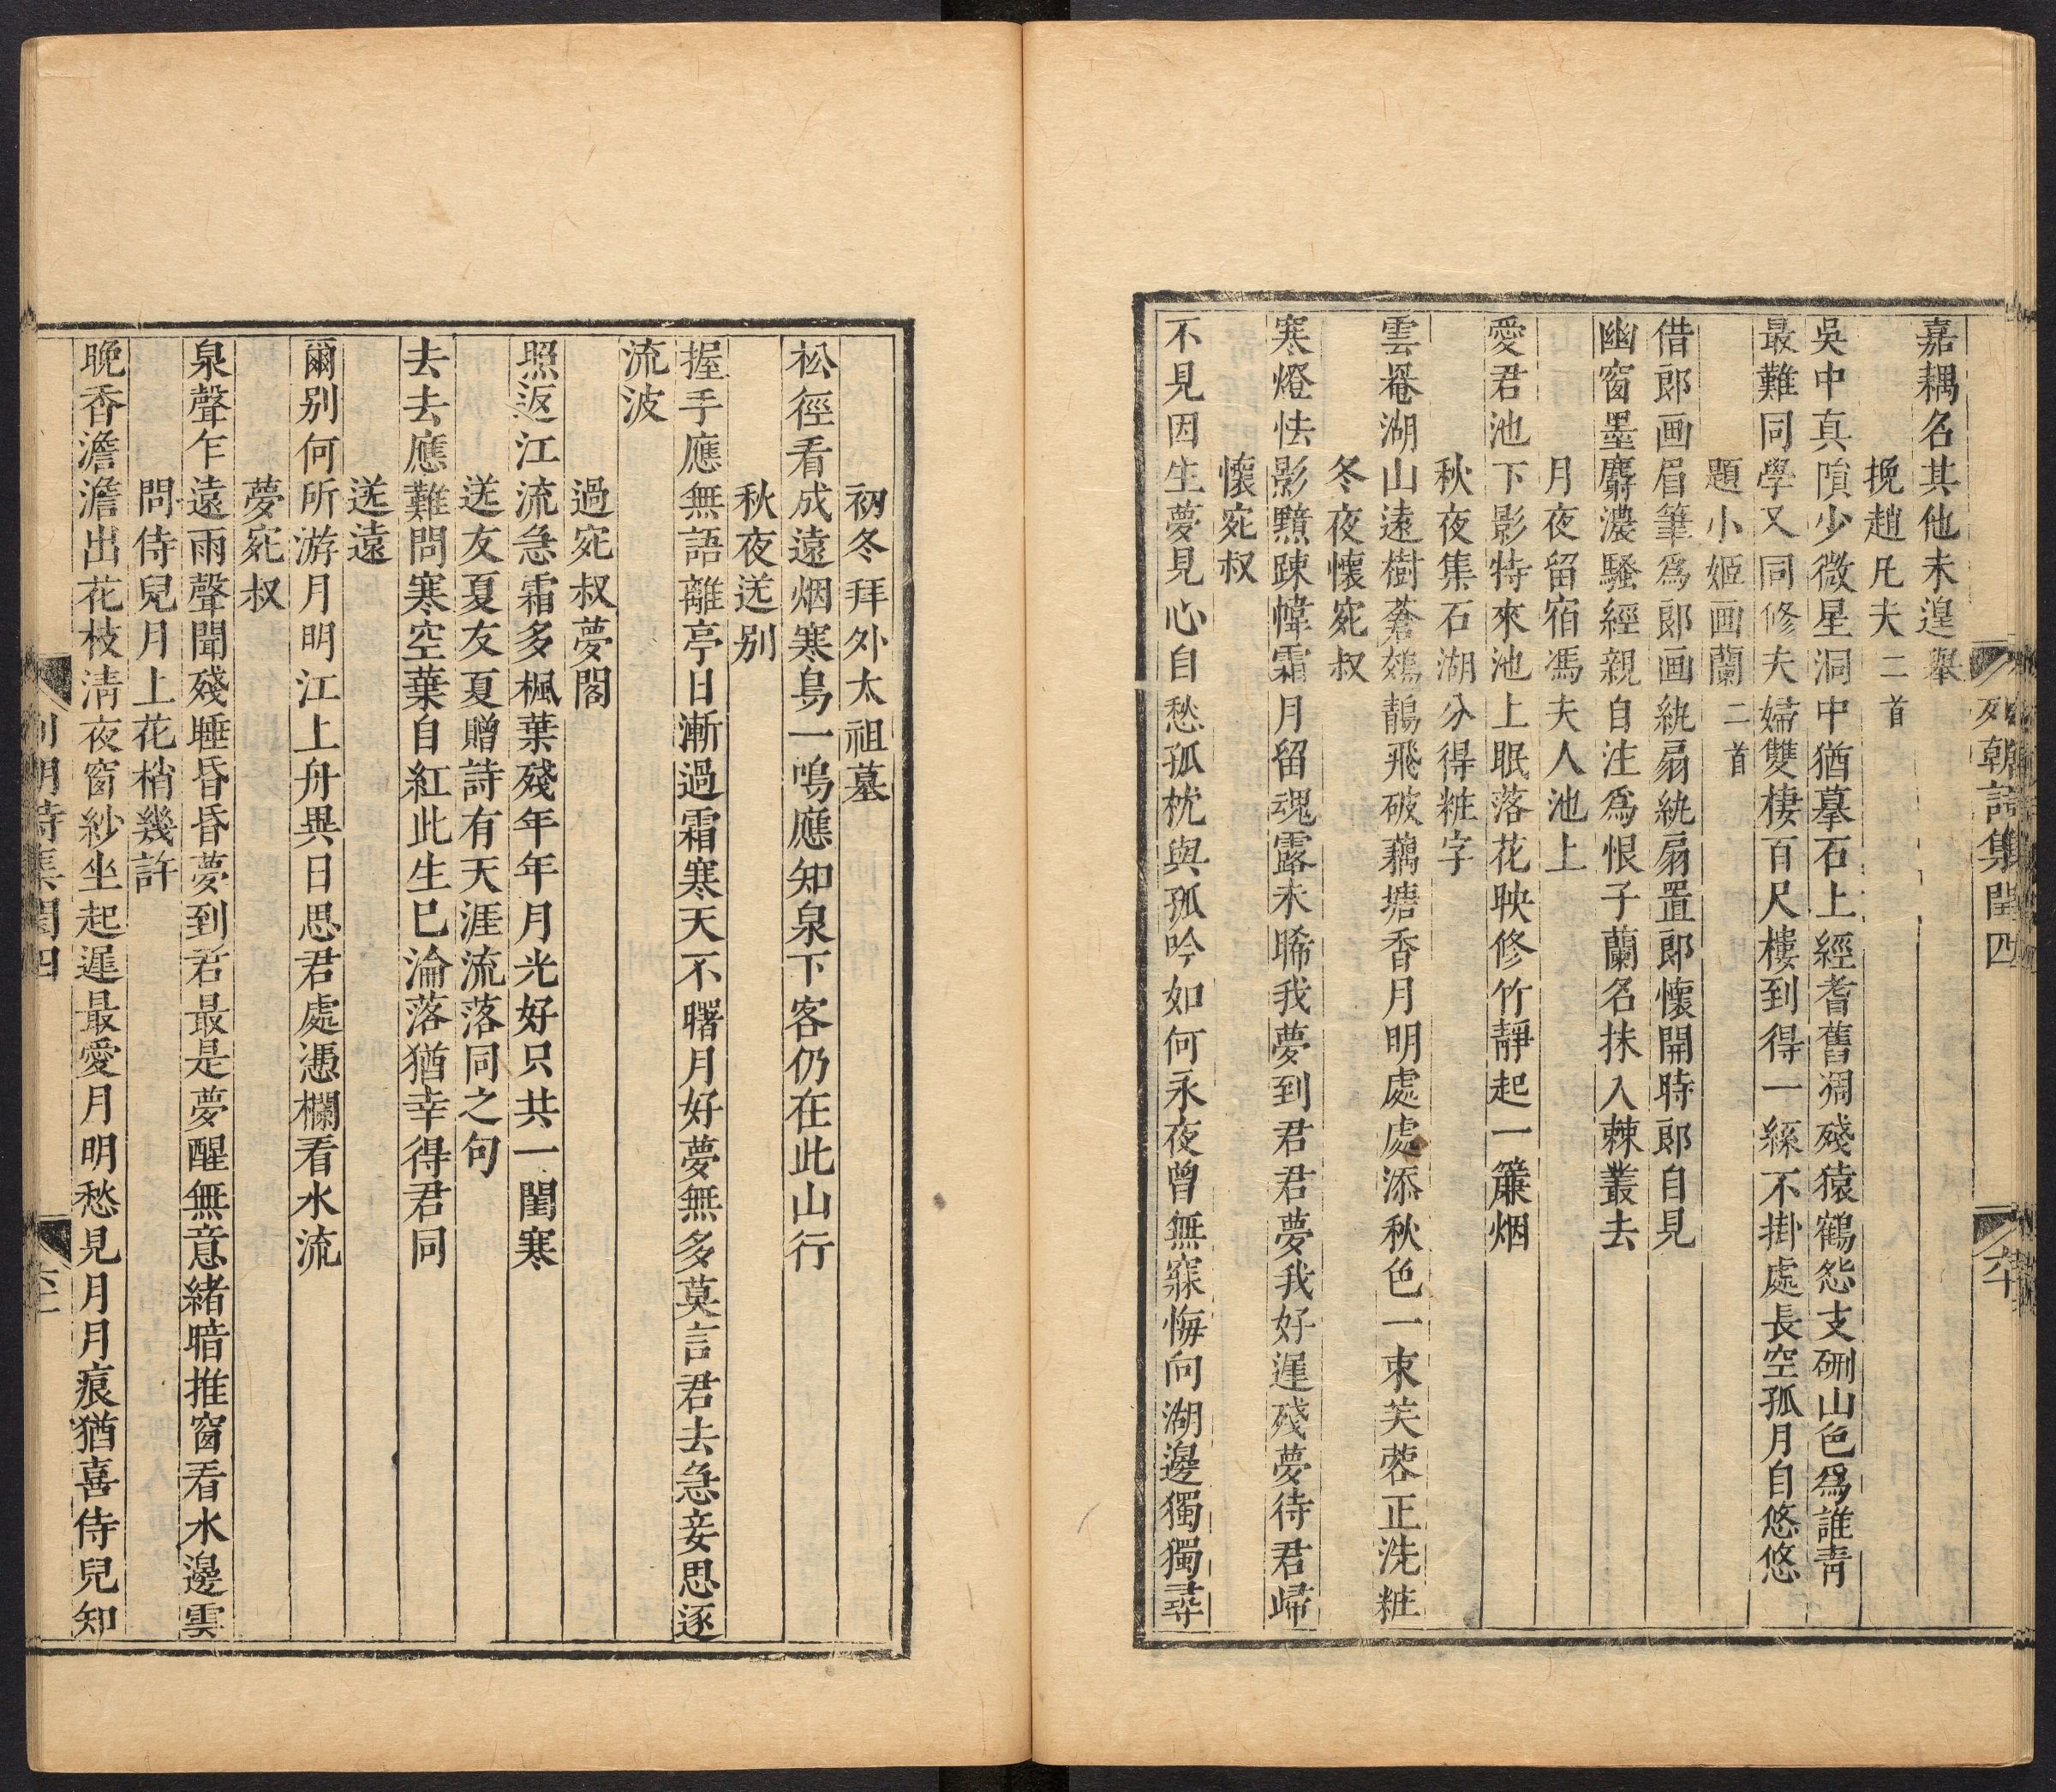 列朝詩集閏四
六十
嘉耦名其他未遑舉
挽趙凡夫二首
吳中真隕少微星洞中猶摹石上經耆舊凋殘猿鶴怨支硎山色爲誰青
最難同學又同修夫婦雙棲百尺樓到得一絲不掛處長空孤月自悠悠
題小姬画蘭二首
借郎画眉筆爲郎画紈扇紈扇置郎懷開時郎自見
幽窗墨麝濃騷經親自注爲恨子蘭名抹入棘叢去
月夜留宿馮夫人池上
愛君池下影特來池上眠落花映修竹靜起一簾烟
秋夜集石湖分得粧字
雲罨湖山遠樹蒼鷓鴣飛破藕塘香月明處處添秋色一朿芙蓉正洗粧
冬夜懷宛叔
寒燈怯影黯踈幃霜月留魂露未晞我夢到君君夢我好遲殘夢待君歸
懷宛叔
不見因生夢見心自愁孤枕與孤吟如何永夜曾無寐悔向湖邊獨獨尋
初冬拜外太祖墓
松徑看成遠烟寒鳥一鳴應知泉下客仍在此山行
秋夜送别
握手應無語離亭日漸過霜寒天不曙月好夢無多莫言君去急妾思逐
流波
過宛叔夢閣
照返江流急霜多楓葉殘年年月光好只共一閨寒
送友夏友夏贈詩有天涯流落同之句
去去應難問寒空葉自紅此生已淪落猶幸得君同
送遠
爾别何所游月明江上舟異日思君處憑欄看水流
夢宛叔
泉聲乍遠雨聲聞殘睡昏昏夢到君最是夢醒無意緒暗推窗看水邊雲
問侍兒月上花梢幾許
晚香澹澹出花枝清夜窗紗坐起遲最愛月明愁見月月痕猶喜侍兒知
列朝詩集閏四